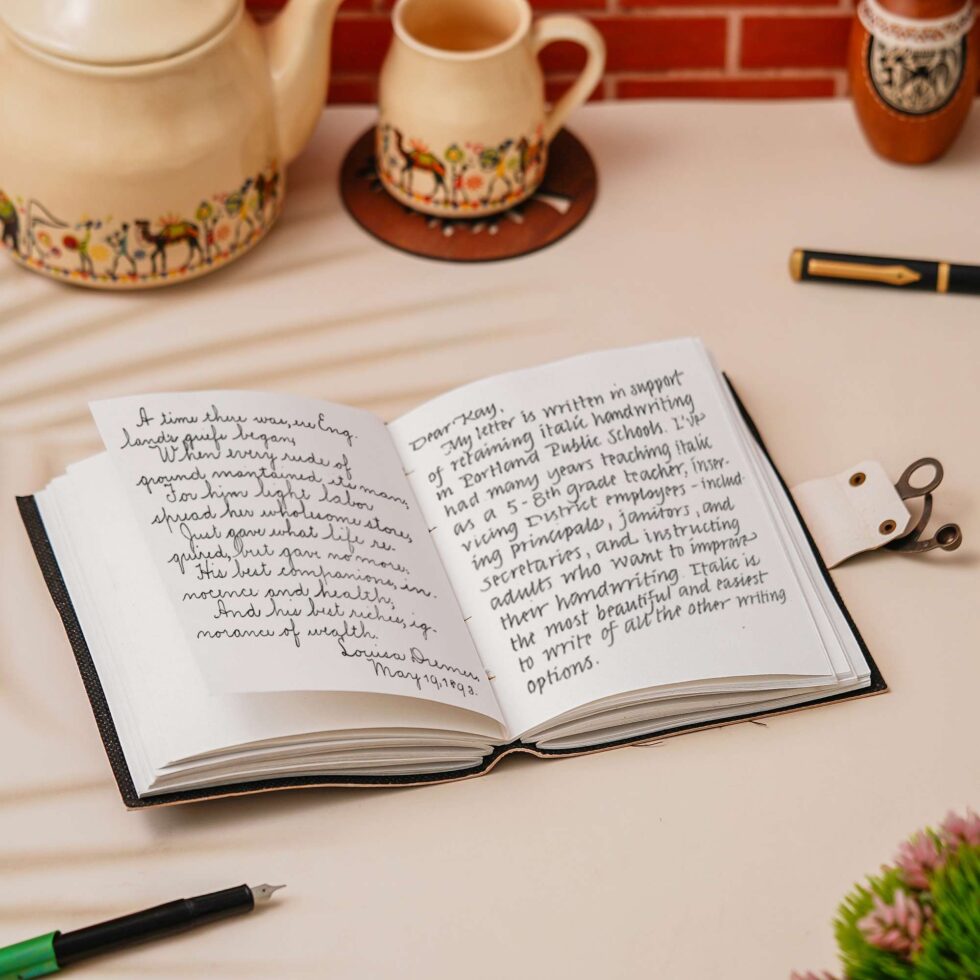 A time there was, ere Eng-
land's griefs began,
When every rude of
ground mantained, its man,
For him light labor
spread her wholesome store,
Just gave what life re-
quired, but gave no more.
His best companions, in-
nocence and health,
And his best riches, ig-
norance of wealth.
Louisa
May 19, 1893.
Dear Kay,
My letter is written in support
of retaining italic handwriting
in Portland Public Schools. I've
had many years teaching italic
as a 5-8th grade teacher, inser-
vicing District employees - includ-
ing principals, janitors, and
secretaries, and instructing
adults who want to improve
their handwriting. Italic is
the most beautiful and easiest
to write of all the other writing
options.